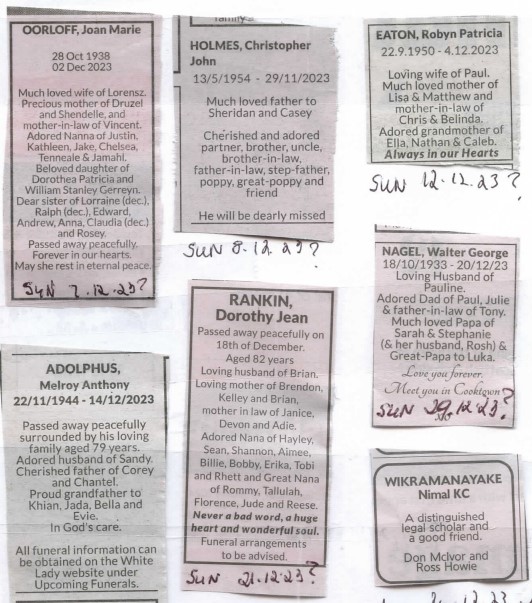 OORLOFF, Joan Marie
28 Oct 1938
02 Dec 2023
Much loved wife of Lorensz.
Precious mother of Druzel
and Shendelle, and
mother-in-law of Vincent.
Adored Nanna of Justin,
Kathleen, Jake, Chelsea,
Tenneale & Jamahl.
Beloved daughter of
Dorothea Patricia and
William Stanley Gerreyn.
Dear sister of Lorraine (dec.),
Ralph (dec.), Edward,
Andrew, Anna, Claudia (dec.)
and Rosey.
Passed away peacefully.
Forever in our hearts.
May she rest in eternal peace.
SUN 7.12.23?
ADOLPHUS,
Melroy Anthony
22/11/1944 - 14/12/2023
Passed away peacefully
surrounded by his loving
family aged 79 years.
Adored husband of Sandy.
Cherished father of Corey
and Chantel.
Proud grandfather to
Khian, Jada, Bella and
Evie.
In God's care.
All funeral information can
be obtained on the White
Lady website under
Upcoming Funerals.
family.
HOLMES, Christopher
John
13/5/1954 - 29/11/2023
Much loved father to
Sheridan and Casey
Cherished and adored
partner, brother, uncle,
brother-in-law,
father-in-law, step-father,
poppy, great-poppy and
friend
He will be dearly missed
SUN 8.12.23?
RANKIN,
Dorothy Jean
Passed away peacefully on
18th of December.
Aged 82 years
Loving husband of Brian.
Loving mother of Brendon,
Kelley and Brian,
mother in law of Janice,
Devon and Adie.
Adored Nana of Hayley,
Sean, Shannon, Aimee,
Billie, Bobby, Erika, Tobi
and Rhett and Great Nana
of Rommy, Tallulah,
Florence, Jude and Reese.
Never a bad word, a huge
heart and wonderful soul.
Funeral arrangements
to be advised.
SUN 21.12.23?
EATON, Robyn Patricia
22.9.1950 - 4.12.2023
Loving wife of Paul.
Much loved mother of
Lisa & Matthew and
mother-in-law of
Chris & Belinda.
Adored grandmother of
Ella, Nathan & Caleb.
Always in our Hearts
SUN 12.12.23?
NAGEL, Walter George
18/10/1933 - 20/12/23
Loving Husband of
Pauline.
Adored Dad of Paul, Julie
& father-in-law of Tony.
Much loved Papa of
Sarah & Stephanie
(& her husband, Rosh) &
Great-Papa to Luka.
Love you forever.
Meet you in Cooktown
SUN 29.12.23?
WIKRAMANAYAKE
Nimal KC
A distinguished
legal scholar and
a good friend.
Don McIvor and
Ross Howie